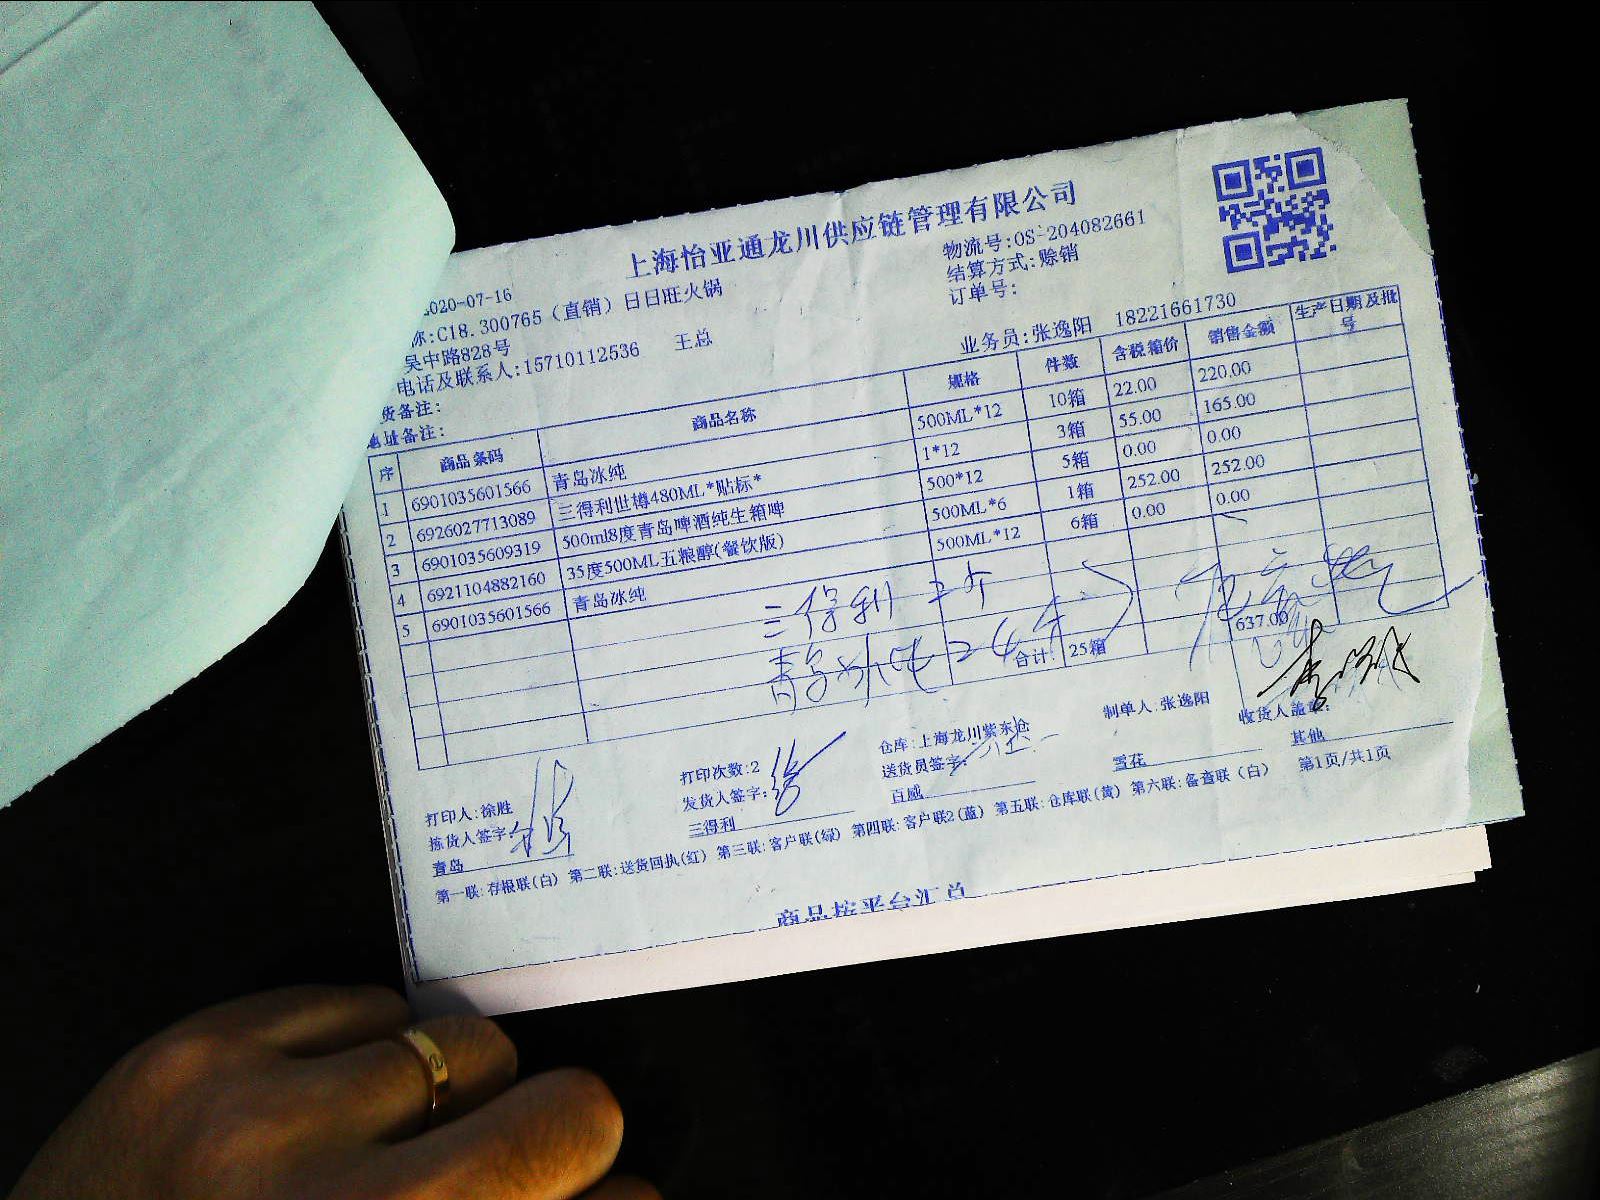 上海怡亚通龙川供应链管理有限公司
2020-07-16
物流号:OS-204082661
称:C18.300765（直销）日日旺火锅
结算方式:赊销
吴中路828号
订单号:
电话及联系人:15710112536 王总
业务员:张逸阳 18221661730
货备注:
地址备注:
序 商品条码 商品名称 规格 件数 含税箱价 销售金额 生产日期及批号
1 6901035601566 青岛冰纯 500ML*12 10箱 22.00 220.00
2 6926027713089 三得利世樽480ML*贴标* 1*12 3箱 55.00 165.00
3 6901035609319 500ml8度青岛啤酒纯生箱啤 500*12 5箱 0.00 0.00
4 6921104882160 35度500ML五粮醇(餐饮版) 500ML*6 1箱 252.00 252.00
5 6901035601566 青岛冰纯 500ML*12 6箱 0.00 0.00
三得利
青岛冰纯24
合计: 25箱 637.00
打印人:徐胜 打印次数:2 仓库:上海龙川紫东仓 制单人:张逸阳 收货人盖章:
拣货人签字: 发货人签字: 送货员签字:
青岛 三得利 百威 雪花 其他
第一联:存根联(白) 第二联:送货回执(红) 第三联:客户联(绿) 第四联:客户联2(蓝) 第五联:仓库联(黄) 第六联:备查联（白） 第1页/共1页
商品按平台汇总